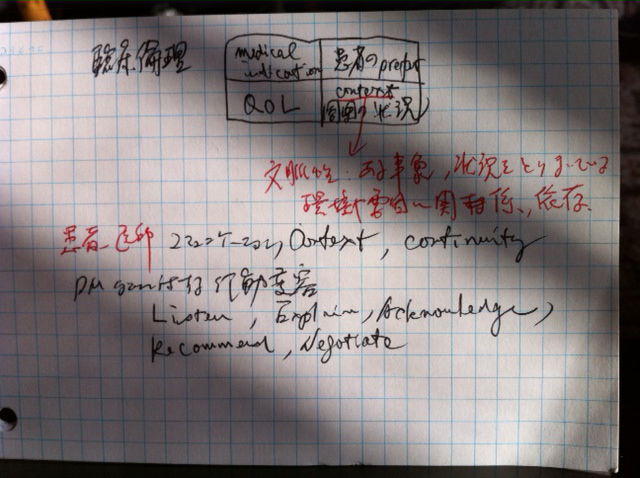 臨床倫理
medical indication
患者のprefer
QOL
context
周囲の状況
文脈性:ある事象,状況をとりまいている
環境要因に関係,依存
患者-医師 コミュニケーション, Context, continuity
DM 行動変容
Listen, Explain, Acknowledge,
Recommend, Negotiate